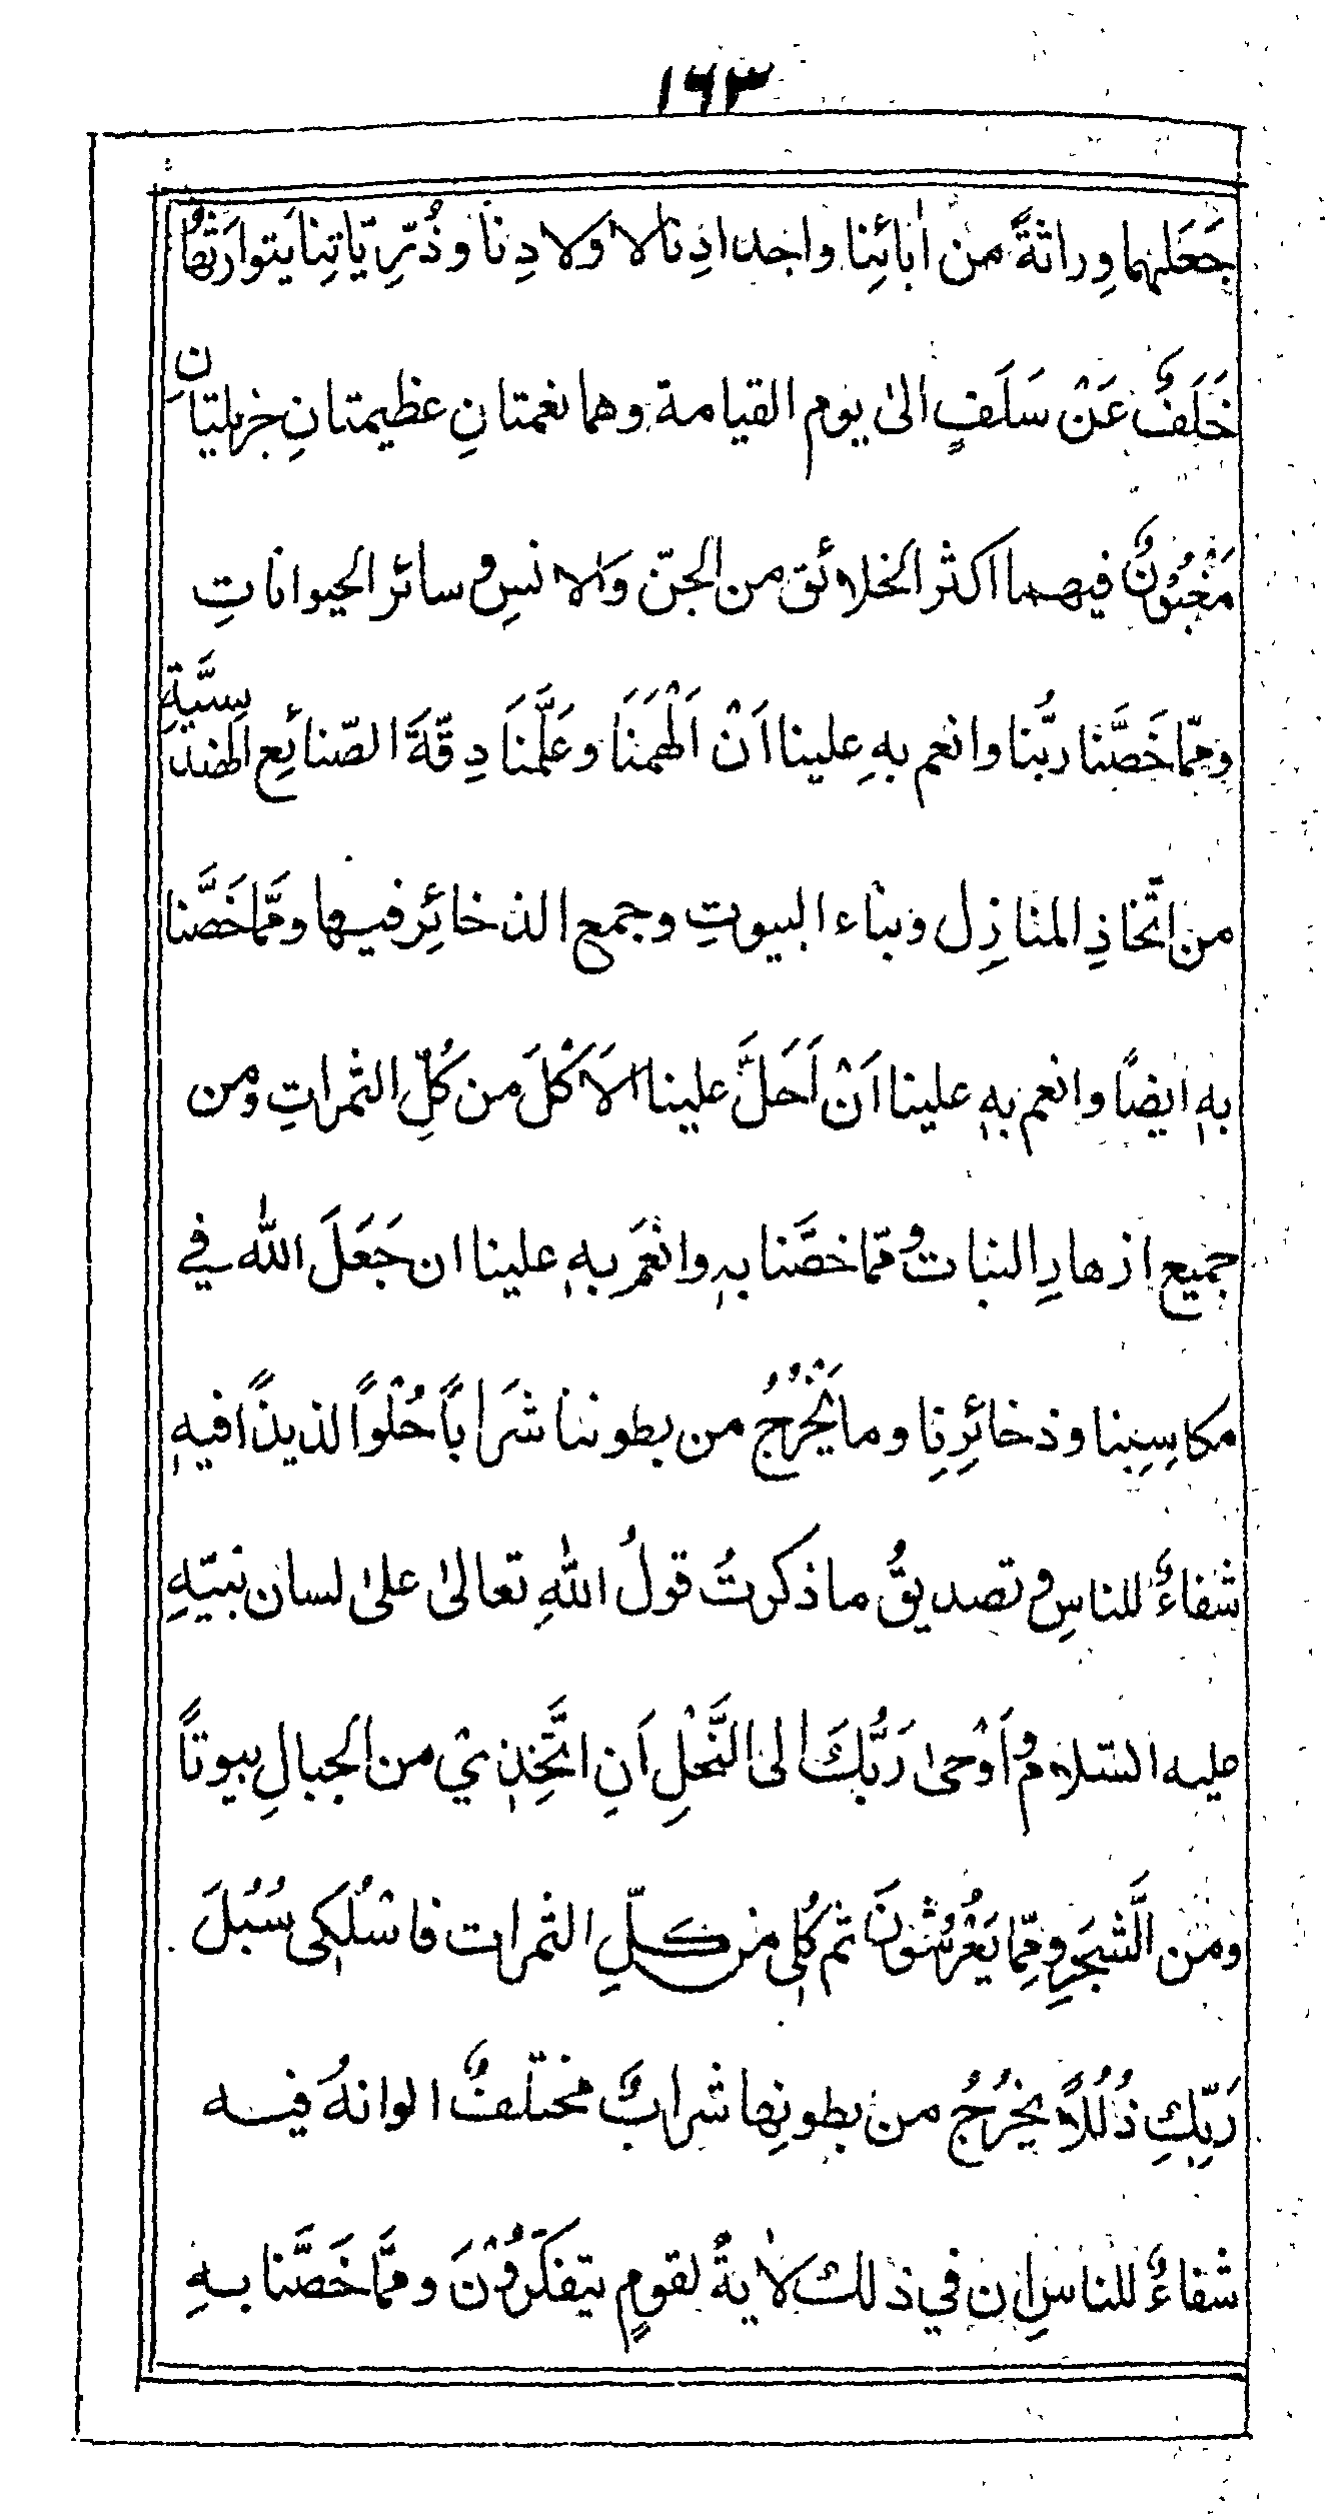 ١٦٣
جَعَلهما وِراثةً من اٰبائِنا واجدادِنا لاولادِنا وذُرّيّاتِنا يَتوارَثُها
خَلَفٌ عَنْ سَلَفٍ الىٰ يوم القيامة وهما نعمتانِ عظيمتانِ جزيلتانِ
مَغْبُوْنٌ فيهما اكثر الخلائق من الجنّ والانسِ وسائر الحيواناتِ
وممّا خَصَّنا ربُّنا وانعم بهِ علينا اَنْ اَلْهَمَنَا وعَلَّمَنَا دِقّةَ الصّنائِع الهندسِيَّةِ
من اتّخاذِ المنازِل وبناء البيوتِ وجمع الذخائِر فيها وممّا خَصَّنا
بهٖ ايضًا وانعم بهٖ علينا اَنْ اَحَلَّ علينا الاَكْلَ من كُلِّ الثمراتِ ومن
جميع ازهارِ النبات وممّا خصَّنا بهٖ وانْعَمَ بهٖ علينا ان جَعَلَ الله في
مكاسِبِنا وذخائِرِنا وما يَخْرُجُ من بطوننا شَرَابًا حُلْوًا لذيذًا فيهٖ
شفاءٌ للناسِ وتصديقُ ما ذكرتُ قولُ اللهِ تعالىٰ علىٰ لسان نبيّهِ
عليه السّلام وَاَوْحىٰ رَبُّكَ الى النَّحْلِ اَنِ اتَّخِذِيْ من الجبالِ بيوتًا
ومن الشَّجَرِ ومِمّا يَعْرُشُوْنَ ثم كُلِي من كلِّ الثمرات فاسْلُكِى سُبُلَ
رَبِّكِ ذُلُلًا يخرُجُ من بطونِها شرابٌ مختلفٌ الوانهُ فيه
شفاءٌ للناسِ ان في ذلك لاٰيةً لقومٍ يتفكّرُوْنَ وممَّا خَصَّنا بهِ